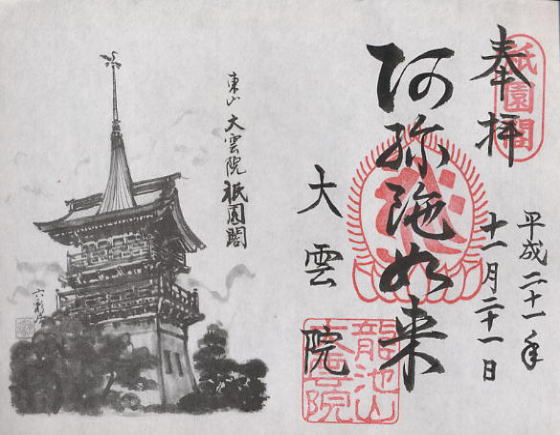 奉拝
祇園閣
平成二十一年
十一月二十一日
阿弥陀如来
大雲院
龍池山
大雲院
東山 大雲院 祇園閣